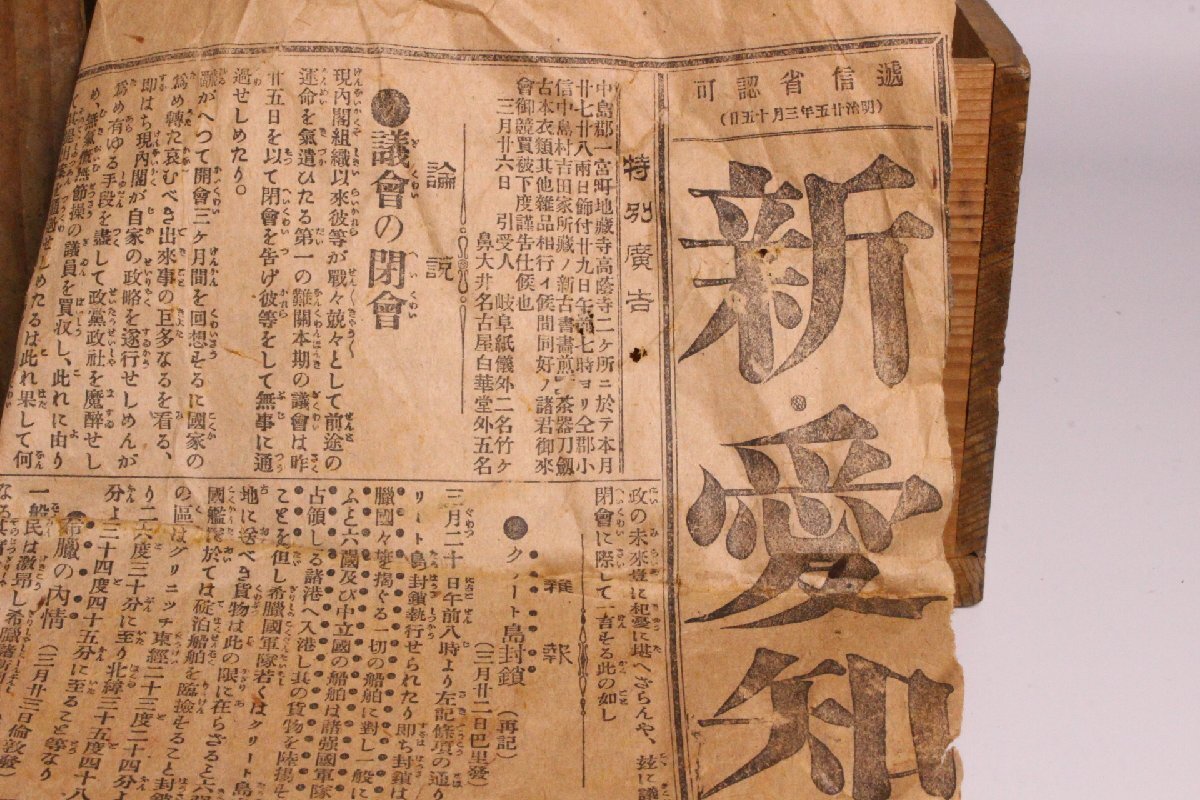 遞信省認可
(明治廿五年三月十五日)
新愛知
特別廣告
中島郡一宮町地藏寺高蔭寺二ケ所ニ於テ本月
廿七廿八兩日飾付廿九日午前七時ヨリ仝郡小
信中島村吉田家所藏ノ新古書畫煎茶器刀劔
古本衣類其他雜品相行ィ候間同好ノ諸君御來
會御競買被下度謹告仕候也
三月廿六日 引受人 岐阜紙儀外二名竹ヶ
鼻大井名古屋白華堂外五名
論説
●議會の閉會
現内閣組織以來彼等が戰々兢々として前途の
運命を氣遣ひたる第一の難關本期の議會は昨
廿五日を以て閉會を告げ彼等をして無事に通
過せしめたり。
飜がへつて開會三ヶ月間を回想するに國家の
爲め轉た哀むべき出來事の巨多なるを看る、
即はち現内閣が自家の政略を遂行せしめんが
爲め有ゆる手段を盡して政黨政社を魔醉せし
め、無氣償無節操の議員を買収し、此れに由り
しめたるは此れ果して何
政の未來に杞憂に堪へざらんや、玆に議
閉會に際して一言する此の如し
雜報
●クリート島封鎖 (再記)
(三月廿二日巴里發)
三月二十日午前八時より左記條項の通り
リート島封鎖執行せられたり即ち封鎖は
臘國々旗を揭ぐる一切の船舶に對し一般に
ふと六國及び中立國の船舶は諸強國軍隊
占領しる諸港へ入港し其の貨物を陸揚そ
ことを但し希臘國軍隊若くはクリート島
地に送べき貨物は此の限に在らざると六强
國艦に於ては碇泊船舶を臨撿すること封鎖
の區はグリニッチ東經二十三度二十四分よ
り二六度三十分に至り北緯三十五度四十八
分より三十四度四十五分に至ること等なり
●希臘の内情 (三月廿三日倫敦發)
一般民は激昂し希臘諸新